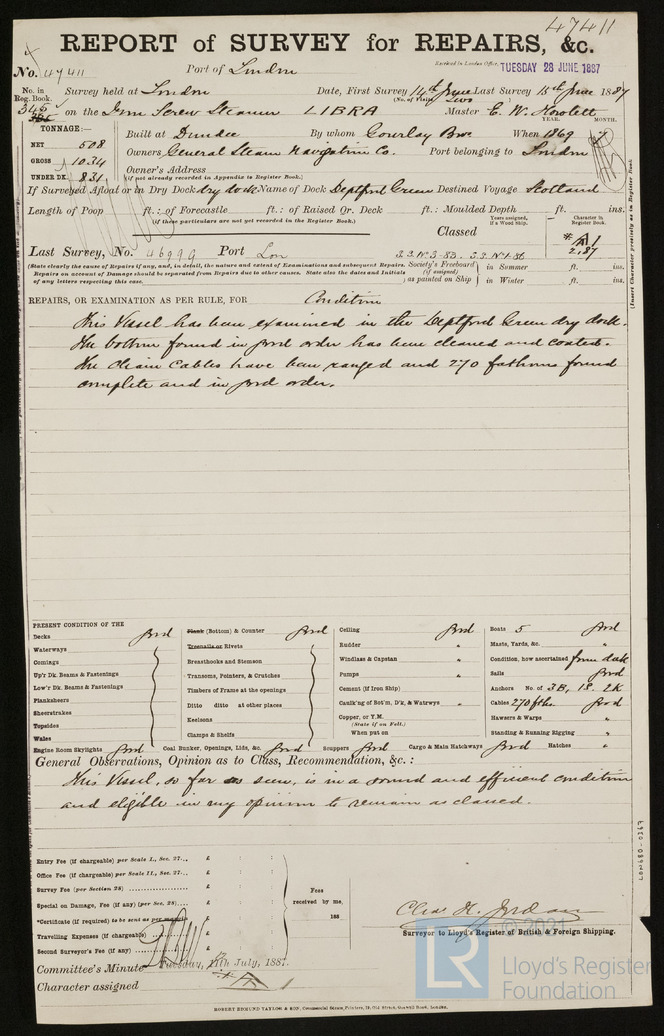 47411
REPORT of SURVEY for REPAIRS, &c.
No. 47411 Port of London Received in London Office, TUESDAY 28 JUNE 1887
No. in Reg. Book. Survey held at London Date, First Survey 14th June Last Survey 15th June 1887
(No. of Visits Two)
345 on the Iron Screw Steamer LIBRA Master E. W. Howlett
TONNAGE:— Built at Dundee By whom Gourlay Bros When 1869 YEAR. MONTH. 7
NET 508
GROSS 1034 Owners General Steam Navigation Co. Port belonging to London
Owner's Address
UNDER DK. 831 (if not already recorded in Appendix to Register Book.)
If Surveyed Afloat or in Dry Dock dry dock Name of Dock Deptford Green Destined Voyage Scotland
Length of Poop ft.: of Forecastle ft.: of Raised Qr. Deck ft.: Moulded Depth ft. ins.
(if these particulars are not yet recorded in the Register Book.)
Classed
Years assigned, if a Wood Ship. Character in Register Book.
Last Survey, No. 46999 Port Lon S.S. No 3-83. S.S. No 1-86 A 1 2.87
(State clearly the cause of Repairs if any, and, in detail, the nature and extent of Examinations and subsequent Repairs. Repairs on account of Damage should be separated from Repairs due to other causes. State also the dates and Initials of any letters respecting this case.
Society's Freeboard (if assigned) as painted on Ship in Summer ft. ins.
in Winter ft. ins.
(Insert Character precisely as in Register Book
REPAIRS, OR EXAMINATION AS PER RULE, FOR Condition
This Vessel has been examined in the Deptford Green dry dock.
The bottom found in good order has been cleaned and coated.
The Chain Cables have been ranged and 270 fathoms found
complete and in good order.
PRESENT CONDITION OF THE
Decks Good
Waterways
Comings
Up'r Dk. Beams & Fastenings
Low'r Dk. Beams & Fastenings
Planksheers
Sheerstrakes
Topsides
Wales
Engine Room Skylights Good
Plank (Bottom) & Counter Good
Treenails or Rivets
Breasthooks and Stemson
Transoms, Pointers, & Crutches
Timbers of Frame at the openings
Ditto ditto at other places
Keelsons
Clamps & Shelfs
Coal Bunker, Openings, Lids, &c. Good
Ceiling Good
Rudder "
Windlass & Capstan "
Pumps "
Cement (if Iron Ship) "
Caulk'ng of Bot'm, D'k, & Watrwys "
Copper, or Y.M.
(State if on Felt.)
When put on
Scuppers Good Cargo & Main Hatchways Good Hatches "
Boats 5 Good
Masts, Yards, &c. "
Condition, how ascertained from deck
Sails Good
Anchors No. of 3B, 1S. 2K
Cables 270 fths. Good
Hawsers & Warps "
Standing & Running Rigging "
General Observations, Opinion as to Class, Recommendation, &c. :
This Vessel, so far as seen, is in a sound and efficient condition
and eligible in my opinion to remain as classed.
Entry Fee (if chargeable) per Scale I., Sec. 27... £
Office Fee (if chargeable) per Scale II., Sec. 27... £
Survey Fee (per Section 28) £
Special on Damage, Fee (if any) (per Sec. 28) £
*Certificate (if required) to be sent as per margin £
Travelling Expenses (if chargeable) £
Second Surveyor's Fee (if any) £
Fees received by me, 188
Chas. H. Jordan
Surveyor to Lloyd's Register of British & Foreign Shipping.
Committee's Minute Tuesday, 12th July, 1887.
Character assigned A 1
ROBERT EDMUND TAYLOR & SON, Commercial Steam Printers, 19, Old Street, Goswell Road, London.
LON680-0367
© 2021
LR
Lloyd's Register
Foundation